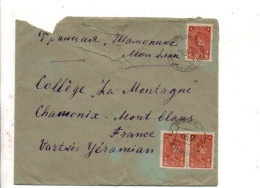 Франция, Шамоникс
Монблан
Collège "La Montagne"
Chamonix - Mont blanc
France
Vartzès Yéramian